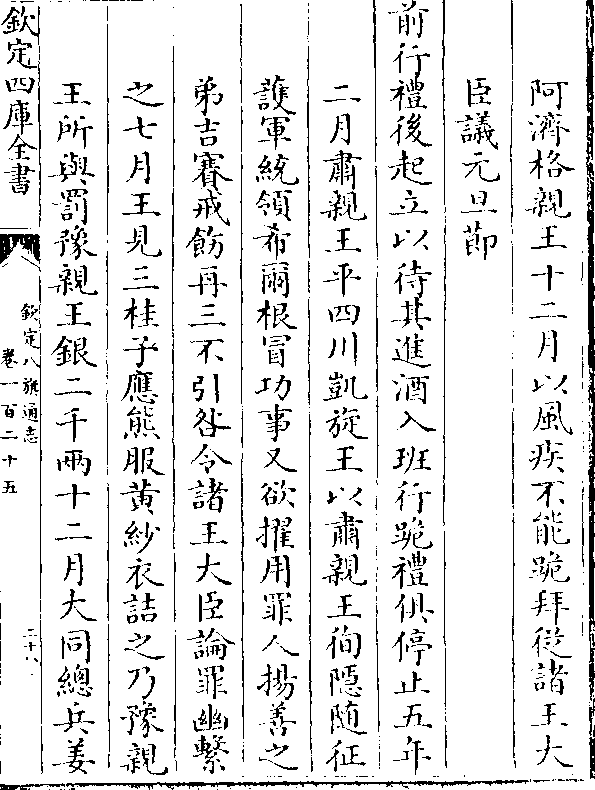 阿濟格親王十二月以風疾不能跪拜從諸王大
臣議元旦節
前行禮後起立以待其進酒入班行跪禮俱停止五年
二月肅親王平四川凱旋王以肅親王徇隱随征
護軍統領希爾根冒功事又欲擢用罪人揚善之
弟吉賽戒飭再三不引咎令諸王大臣論罪幽繫
之七月王見三桂子應熊服黄紗衣詰之乃豫親
王所與罰豫親王銀二千兩十二月大同總兵姜
欽定四庫全書
欽定八旗通志
卷一百二十五
二十八